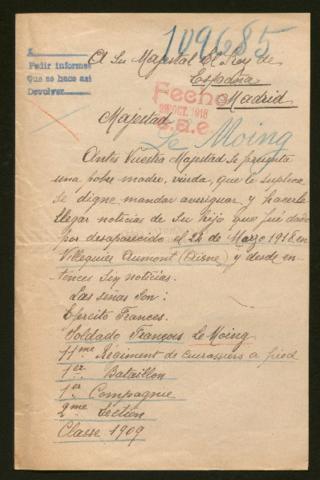 109685
A
Pedir informes
Que se hace así
Devolver
A Su Majestad El Rey de
España
Madrid
Fecho
OCT. 1918
Majestad
Le Moing
Antes Vuestra Majestad se presenta
una pobre madre, viuda, que le suplica
se digne mandar averiguar y hacerle
llegar noticias de Su hijo que fue dado
por desaparecido el 24 de Marzo 1918 en
Villequier Aumont (Aisne) y desde en
tonces sin noticias.
Las señas son:
Ejercito Frances.
Soldado François Le Moing
11me Régiment de Cuirassiers a pied
1er Bataillon
1er Compagnie
2me Section
Classe 1909